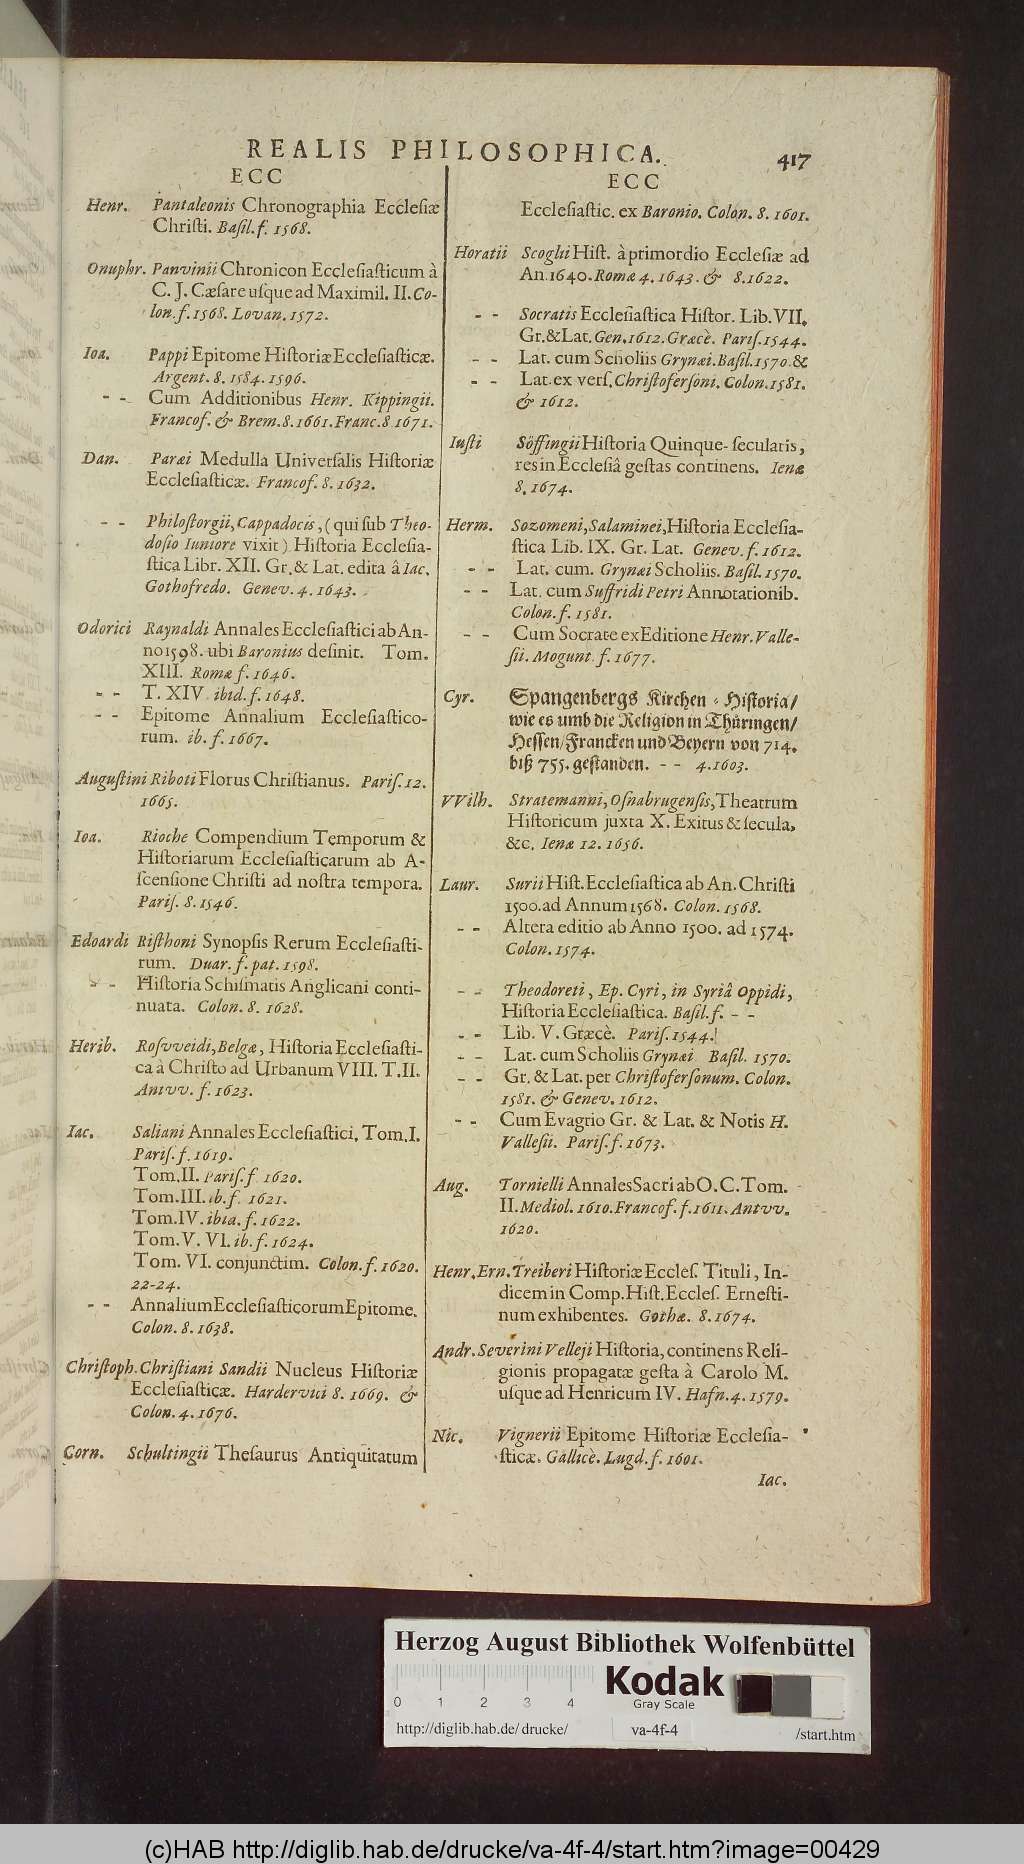 REALIS PHILOSOPHICA.
417
ECC
Henr. Pantaleonis Chronographia Ecclesiæ
Christi. Basil. f. 1568.
Onuphr. Panvinii Chronicon Ecclesiasticum à
C. J. Cæsare usque ad Maximil. II. Co-
lon. f. 1568. Lovan. 1572.
Ioa. Pappi Epitome Historiæ Ecclesiasticæ.
Argent. 8. 1584. 1596.
- - Cum Additionibus Henr. Kippingii.
Francof. & Brem. 8. 1661. Franc. 8 1671.
Dan. Paræi Medulla Universalis Historiæ
Ecclesiasticæ. Francof. 8. 1632.
- - Philostorgii, Cappadocis, (qui sub Theo-
dosio Iuniore vixit) Historia Ecclesia-
stica Libr. XII. Gr. & Lat. edita â Iac.
Gothofredo. Genev. 4. 1643.
Odorici Raynaldi Annales Ecclesiastici ab An-
no 1598. ubi Baronius desinit. Tom.
XIII. Romæ f. 1646.
- - T. XIV ibid. f. 1648.
- - Epitome Annalium Ecclesiastico-
rum. ib. f. 1667.
Augustini Riboti Florus Christianus. Paris. 12.
1665.
Ioa. Rioche Compendium Temporum &
Historiarum Ecclesiasticarum ab A-
scensione Christi ad nostra tempora.
Paris. 8. 1546.
Edoardi Risthoni Synopsis Rerum Ecclesiasti-
rum. Duar. f. pat. 1598.
- - Historia Schismatis Anglicani conti-
nuata. Colon. 8. 1628.
Herib. Rosvveidi, Belgæ, Historia Ecclesiasti-
ca à Christo ad Urbanum VIII. T. II.
Antvv. f. 1623.
Iac. Saliani Annales Ecclesiastici, Tom. I.
Paris. f. 1619.
Tom. II. Paris. f 1620.
Tom. III. ib. f. 1621.
Tom. IV. ibid. f. 1622.
Tom. V. VI. ib. f. 1624.
Tom. VI. conjunctim. Colon. f. 1620.
22-24.
- - Annalium Ecclesiasticorum Epitome.
Colon. 8. 1638.
Christoph. Christiani Sandii Nucleus Historiæ
Ecclesiasticæ. Hardervici 8. 1669. &
Colon. 4. 1676.
Corn. Schultingii Thesaurus Antiquitatum
ECC
Ecclesiastic. ex Baronio. Colon. 8. 1601.
Horatii Scoglii Hist. à primordio Ecclesiæ ad
An. 1640. Romæ 4. 1643. & 8. 1622.
- - Socratis Ecclesiastica Histor. Lib. VII.
Gr. & Lat. Gen. 1612. Græcè. Paris. 1544.
- - Lat. cum Scholiis Grynæi. Basil. 1570. &
- - Lat. ex vers. Christofersoni. Colon. 1581.
& 1612.
Iusti Söffingii Historia Quinque-secularis,
res in Ecclesiâ gestas continens. Ienæ
8. 1674.
Herm. Sozomeni, Salaminei, Historia Ecclesia-
stica Lib. IX. Gr. Lat. Genev. f. 1612.
- - Lat. cum. Grynæi Scholiis. Basil. 1570.
- - Lat. cum Suffridi Petri Annotationib.
Colon. f. 1581.
- - Cum Socrate ex Editione Henr. Valle-
sii. Mogunt f. 1677.
Cyr. Spangenbergs Kirchen-Historia/
wie es umb die Religion in Thüringen/
Hessen/Francken und Beyern von 714.
biß 755. gestanden. - - 4. 1603.
VVilh. Stratemanni, Osnabrugensis, Theatrum
Historicum juxta X. Exitus & secula,
&c. Ienæ 12. 1656.
Laur. Surii Hist. Ecclesiastica ab An. Christi
1500. ad Annum 1568. Colon. 1568.
- - Altera editio ab Anno 1500. ad 1574.
Colon. 1574.
- - Theodoreti, Ep. Cyri, in Syriâ Oppidi,
Historia Ecclesiastica. Basil. f. - -
- - Lib. V. Græcè. Paris. 1544.
- - Lat. cum Scholiis Grynæi Basil. 1570.
- - Gr. & Lat. per Christofersonum. Colon.
1581. & Genev. 1612.
- - Cum Evagrio Gr. & Lat. & Notis H.
Vallesii. Paris. f. 1673.
Aug. Tornielli Annales Sacri ab O. C. Tom.
II. Mediol. 1610. Francof. f. 1611. Antvv.
1620.
Henr. Ern. Treiberi Historiæ Eccles. Tituli, In-
dicem in Comp. Hist. Eccles. Ernesti-
num exhibentes. Gothæ. 8. 1674.
Andr. Severini Velleji Historia, continens Reli-
gionis propagatæ gesta à Carolo M.
usque ad Henricum IV. Hafn. 4. 1579.
Nic. Vignerii Epitome Historiæ Ecclesia-
sticæ. Gallicè. Lugd. f. 1601.
Iac.
Herzog August Bibliothek Wolfenbüttel
0 1 2 3 4
Kodak
Gray Scale
http://diglib.hab.de/drucke/ va-4f-4 /start.htm
(c)HAB http://diglib.hab.de/drucke/va-4f-4/start.htm?image=00429